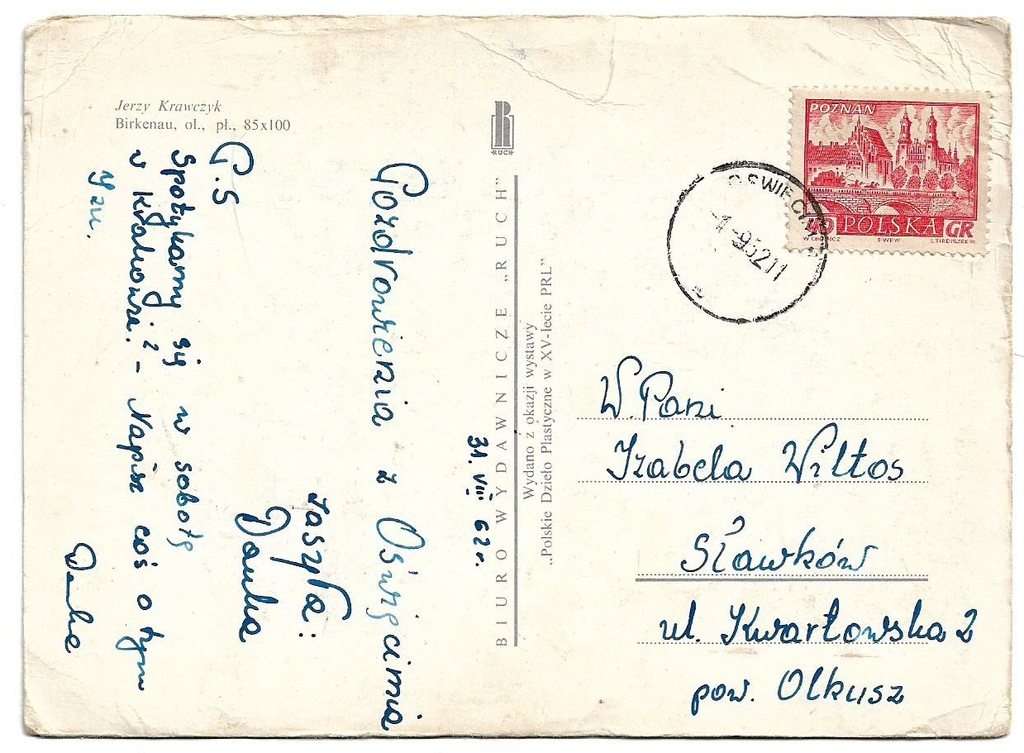 Jerzy Krawczyk
Birkenau, ol., pł., 85x100
RUCH
BIURO WYDAWNICZE „RUCH”
Wydano z okazji wystawy
„Polskie Dzieło Plastyczne w XV-lecie PRL”
31. VIII 62 r.
Pozdrowienia z Oświęcimia
zasyła:
Danka
P.S
Spotykamy się w sobotę
w Krakowie? - Napisz coś o tym
Izu.
Danka
POZNAŃ
POLSKA GR
OŚWIĘCIM
W. Pani
Izabela Wiltos
Sławków
ul. Kwartowska 2
pow. Olkusz